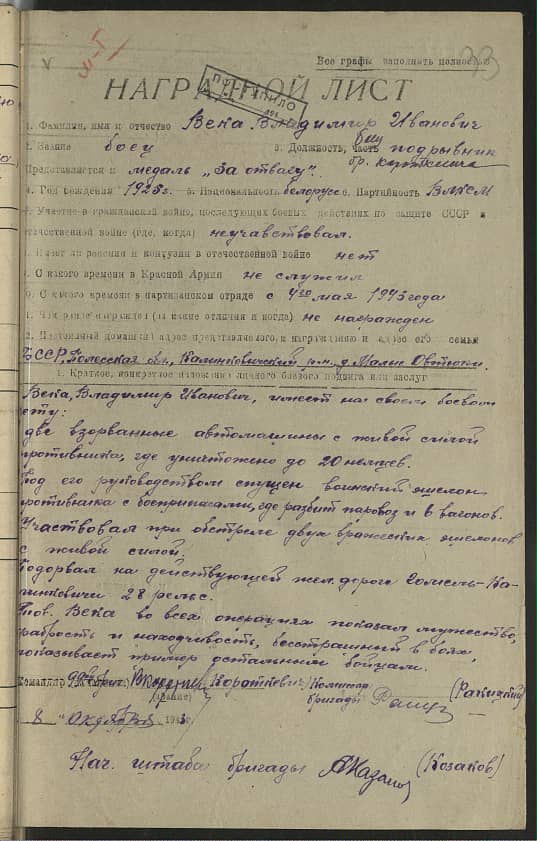 33
Все графы заполнять полностью
НАГРАДНОЙ ЛИСТ
1. Фамилия, имя и отчество Века Владимир Иванович
2. Звание боец 3. Должность, часть боец подрывник
бр.
Представляется к медаль „За отвагу".
4. Год рождения 1925 г. 5. Национальность белорусс 6. Партийность ВЛКСМ
7. Участие в гражданской войне, последующих боевых действиях по защите СССР и
отечественной войне (где, когда) неучавствовал.
8. Имеет ли ранения и контузии в отечественной войне нет
9. С какого времени в Красной Армии не служил
10. С какого времени в партизанском отряде с 4го мая 1943 года
11. Чем ранее награжден (за какие отличия и когда) не награжден
12. Постоянный домашний адрес представляемого к награждению и адрес его семьи
БССР, Полесская обл, Калинковичский р-н. д. Малые Овтюки.
1. Краткое, конкретное изложение личного боевого подвига или заслуг
Века, Владимир Иванович, имеет на своем боевом
счету:
две взорванные автомашины с живой силой
противника, где уничтожено до 20 немцев.
Под его руководством спущен воинский эшелон
противника с боеприпасами, где разбит паровоз и 8 вагонов.
Участвовал при обстреле двух вражеских эшелонов
с живой силой.
Подорвал на действующей жел. дороге Гомель-Ка-
линковичи 28 рельс.
Тов. Века во всех операциях показал мужество,
храбрость и находчивость, бесстрашный в боях,
показывает пример остальным бойцам.
Командир (Короткевич) Комиссар
бригады (Ракицкий)
(звание)
8 " Октября 1943 г
Нач. штаба бригады (Козаков)